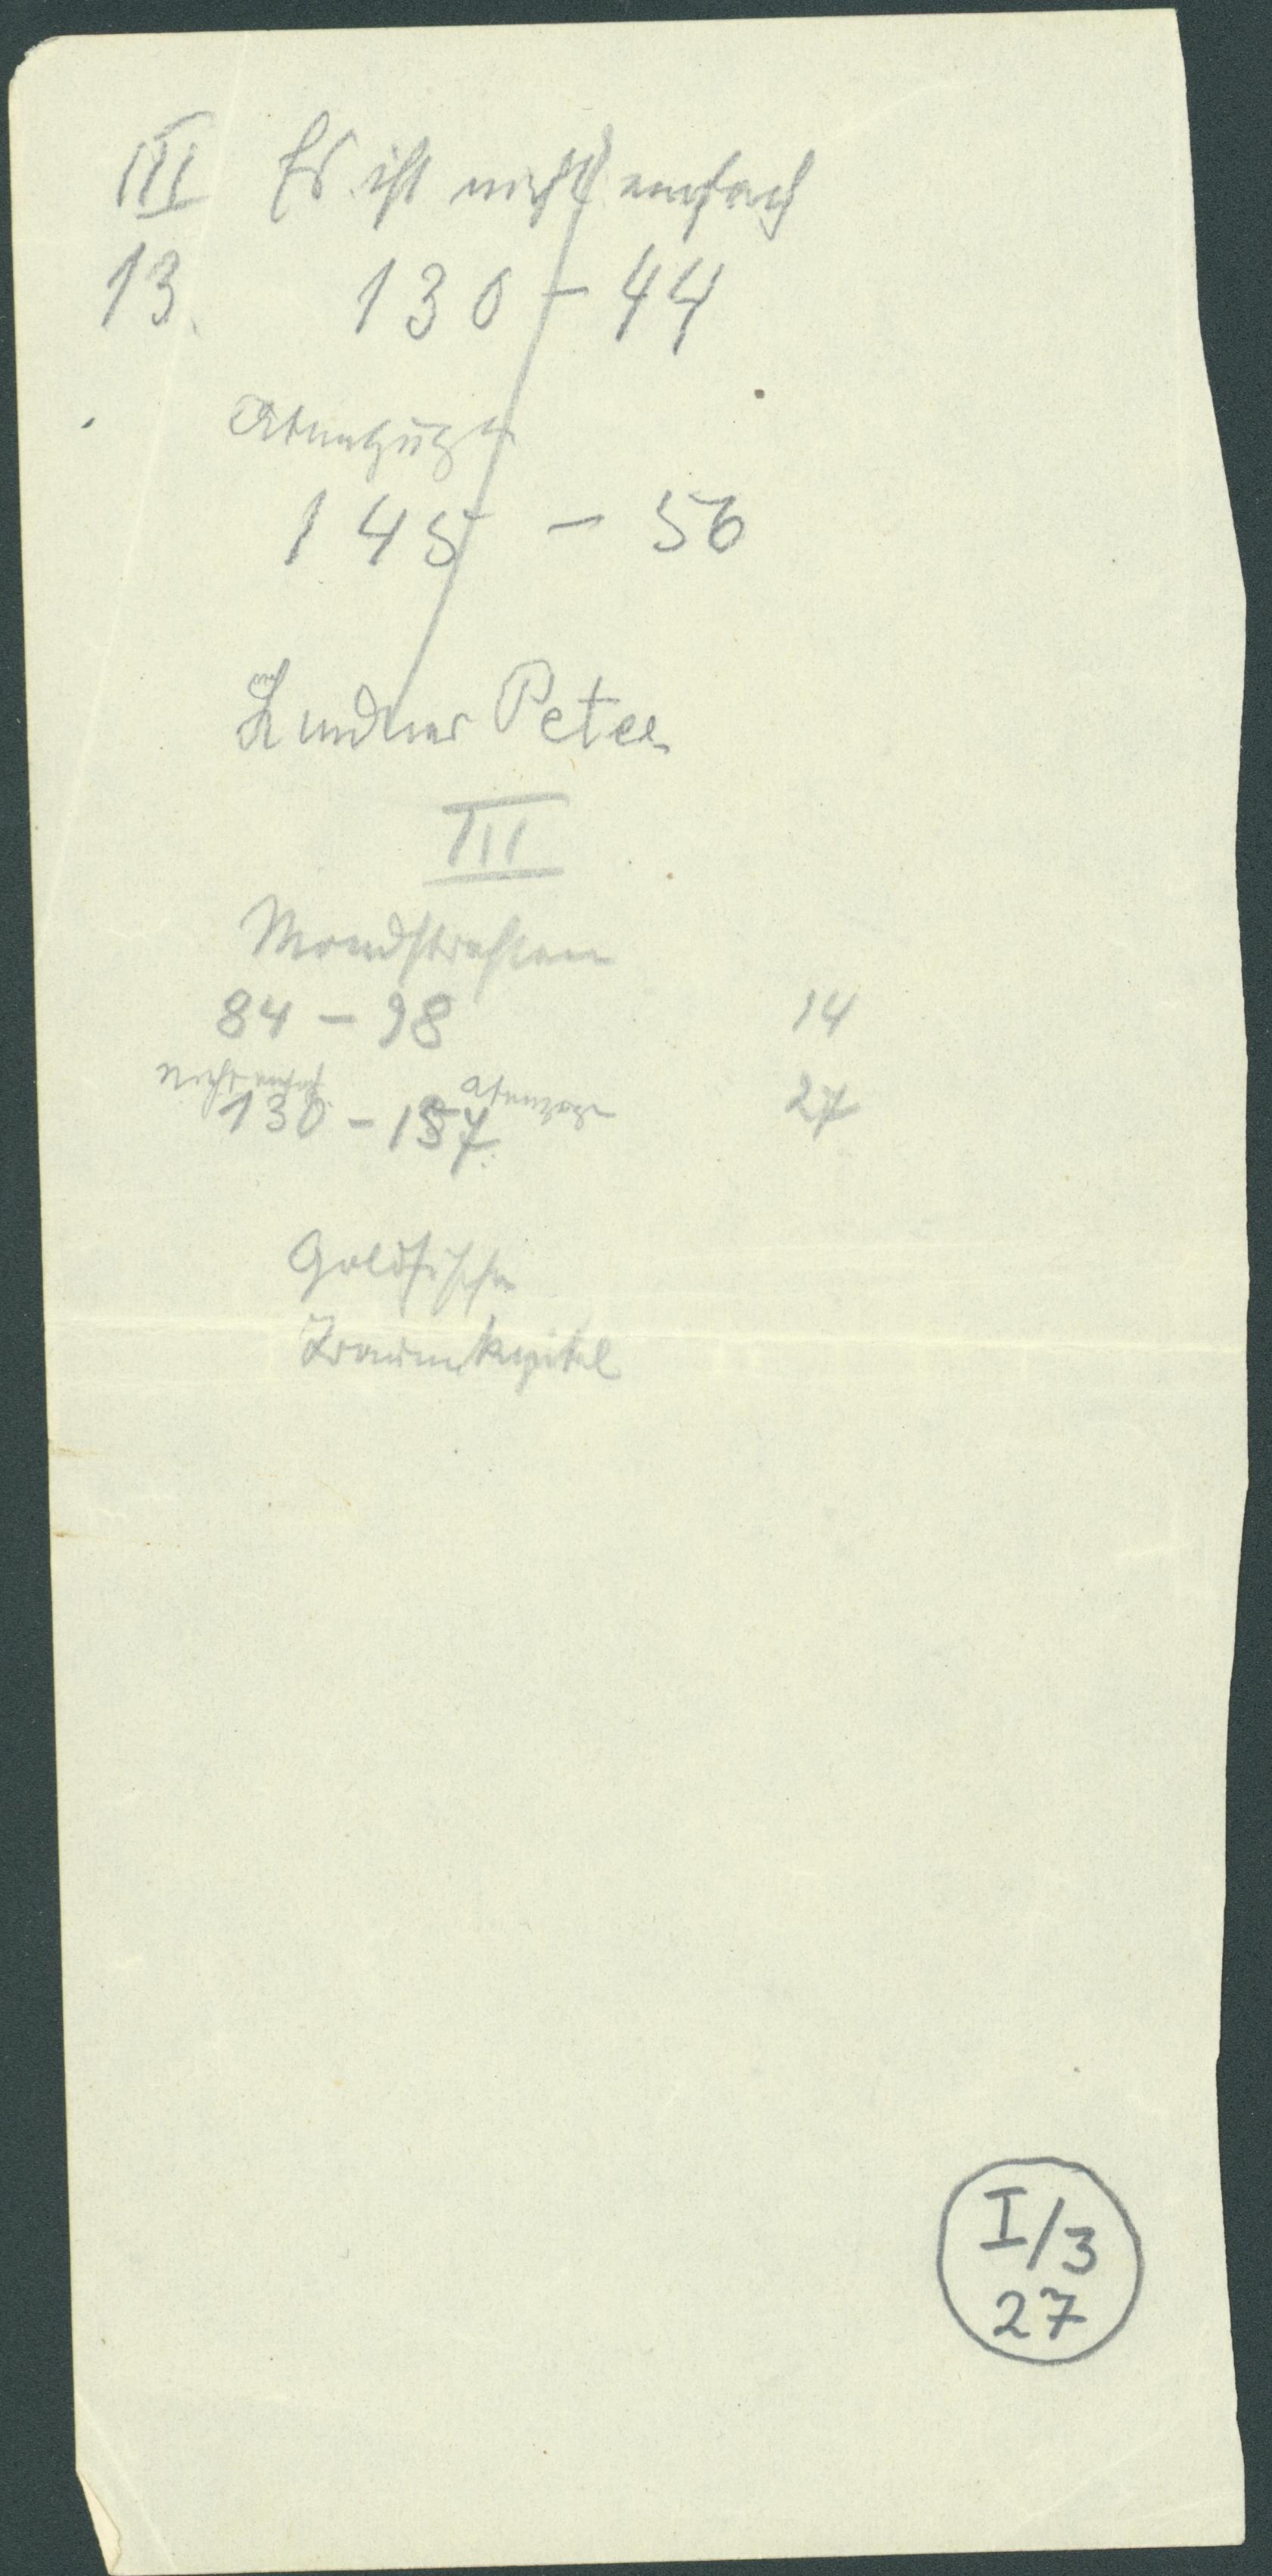 III Es ist nicht einfach
13. 130 – 44
Atemzüge
145 – 56
Lindner Peter
III
Mondstrahlen
84 – 98 14
nicht einfach Atemzüge
130 – 157 27
Goldfische
Traumkapitel
I/3
27